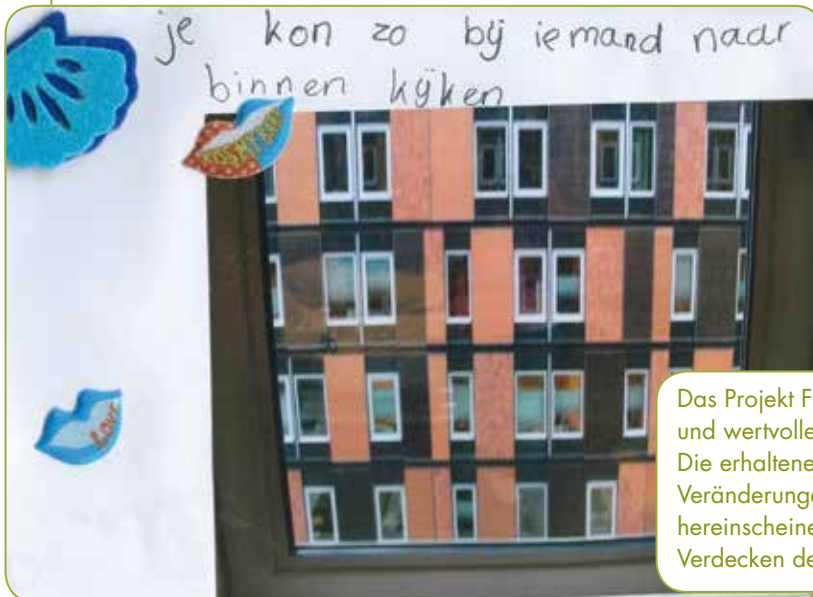 je kon zo bij iemand naar
binnen kijken
LOVE
Das Projekt F
und wertvolle
Die erhaltene
Veränderunge
hereinscheine
Verdecken de